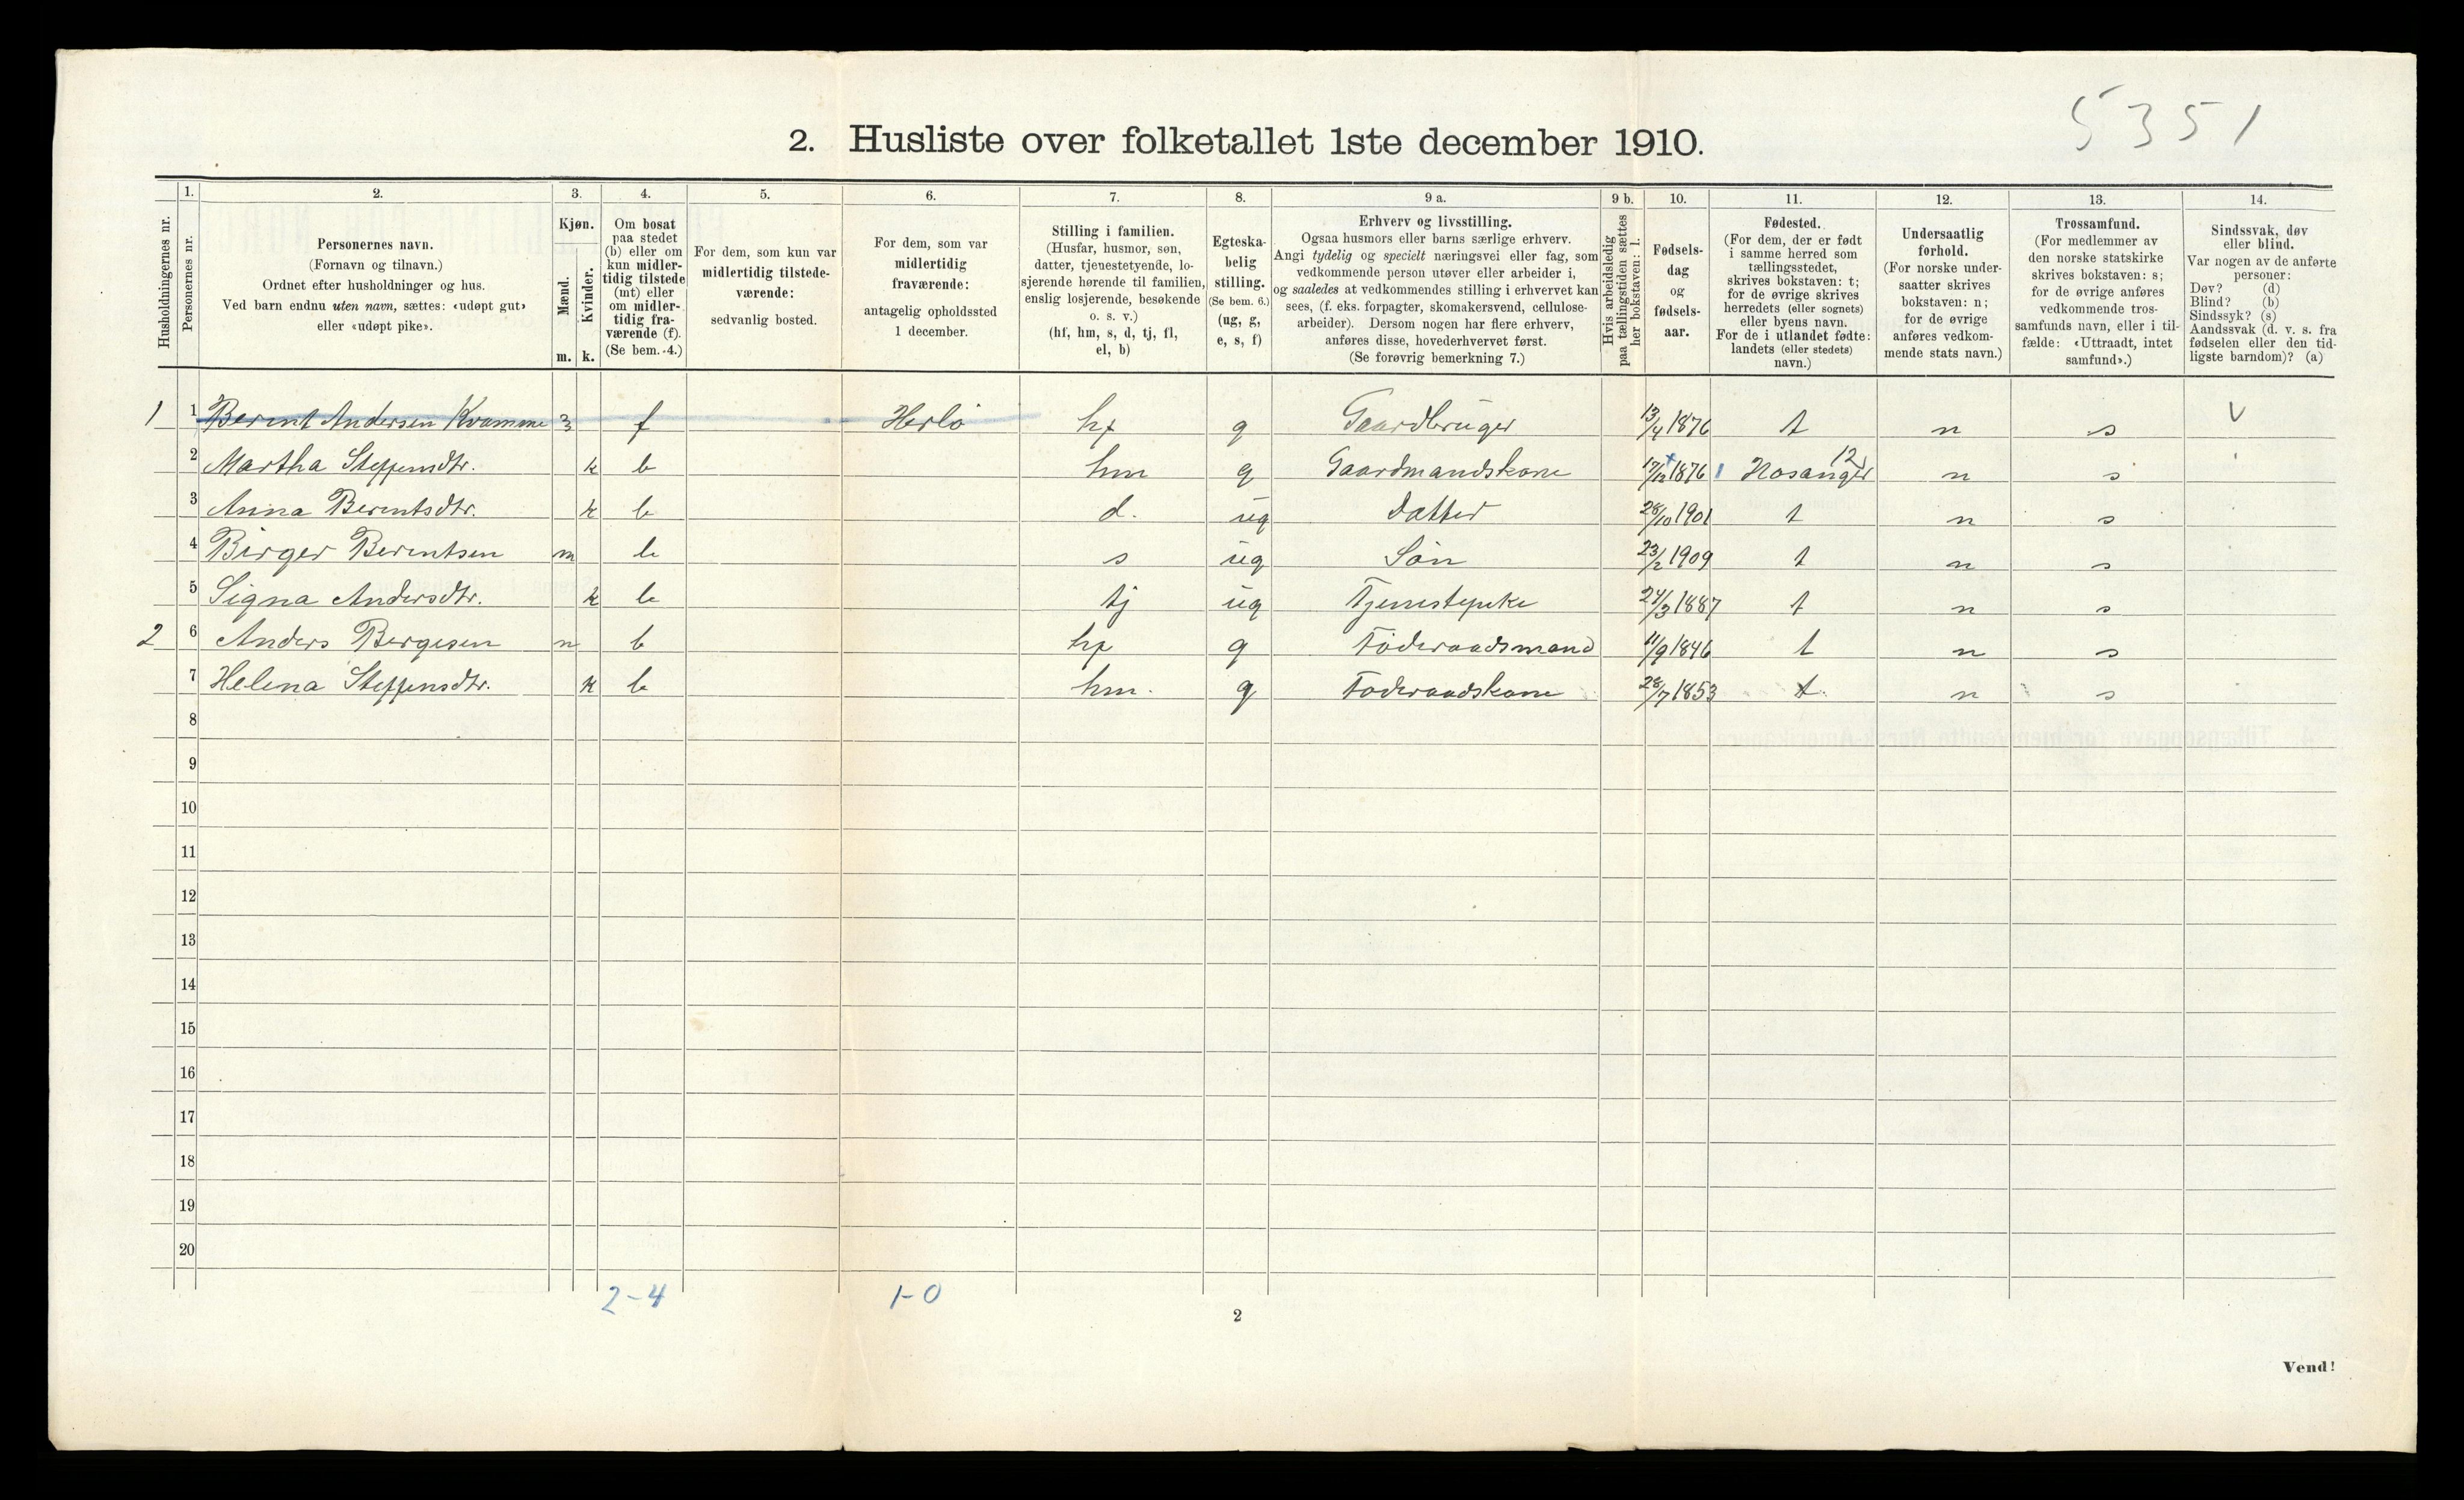 5351
2. Husliste over folketallet 1ste december 1910.
Husholdningernes nr.
1. Personernes nr.
2. Personernes navn.
(Fornavn og tilnavn.)
Ordnet efter husholdninger og hus.
Ved barn endnu uten navn, sættes: «udøpt gut»
eller «udøpt pike».
3. Kjøn.
Mænd. m.
Kvinder. k.
4. Om bosat
paa stedet
(b) eller om
kun midler-
tidig tilstede
(mt) eller
om midler-
tidig fra-
værende (f).
(Se bem. 4.)
5. For dem, som kun var
midlertidig tilstede-
værende:
sedvanlig bosted.
6. For dem, som var
midlertidig
fraværende:
antagelig opholdssted
1 december.
7. Stilling i familien.
(Husfar, husmor, søn,
datter, tjenestetyende, lo-
sjerende hørende til familien,
enslig losjerende, besøkende
o. s. v.)
(hf, hm, s, d, tj, fl,
el, b)
8. Egteska-
belig
stilling.
(Se bem. 6.)
(ug, g,
e, s, f)
9 a. Erhverv og livsstilling.
Ogsaa husmors eller barns særlige erhverv.
Angi tydelig og specielt næringsvei eller fag, som
vedkommende person utøver eller arbeider i,
og saaledes at vedkommendes stilling i erhvervet kan
sees, (f. eks. forpagter, skomakersvend, cellulose-
arbeider). Dersom nogen har flere erhverv,
anføres disse, hovederhvervet først.
(Se forøvrig bemerkning 7.)
9 b. Hvis arbeidsledig
paa tællingstiden sættes
her bokstaven: l.
10. Fødsels-
dag
og
fødsels-
aar.
11. Fødested.
(For dem, der er født
i samme herred som
tællingsstedet,
skrives bokstaven: t;
for de øvrige skrives
herredets (eller sognets)
eller byens navn.
For de i utlandet fødte:
landets (eller stedets)
navn.)
12. Undersaatlig
forhold.
(For norske under-
saatter skrives
bokstaven: n;
for de øvrige
anføres vedkom-
mende stats navn.)
13. Trossamfund.
(For medlemmer av
den norske statskirke
skrives bokstaven: s;
for de øvrige anføres
vedkommende tros-
samfunds navn, eller i til-
fælde: «Uttraadt, intet
samfund».)
14. Sindssvak, døv
eller blind.
Var nogen av de anførte
personer:
Døv? (d)
Blind? (b)
Sindssyk? (s)
Aandssvak (d. v. s. fra
fødselen eller den tid-
ligste barndom)? (a)
1 1 Bernt Andersen Kvamme 3 f Herlö hf g Gaardbruger 13/4 1876 t n s V
2 Martha Steffensdtr. k b hm g Gaardmandskone 17/12 1876 Hosanger 12 n s
3 Anna Berntsdtr. k b d. ug datter 28/10 1901 t n s
4 Birger Berentsen m b s ug Sön 23/2 1909 t n s
5 Signa Andersdtr. k b tj ug Tjenestepike 24/3 1887 t n s
2 6 Anders Bergesen m b hf g Föderaadsmand 11/9 1846 t n s
7 Helena Steffensdtr. k b hm. g Föderaadskone 28/7 1853 t n s
8
9
10
11
12
13
14
15
16
17
18
19
20
2-4 1-0
2
Vend!